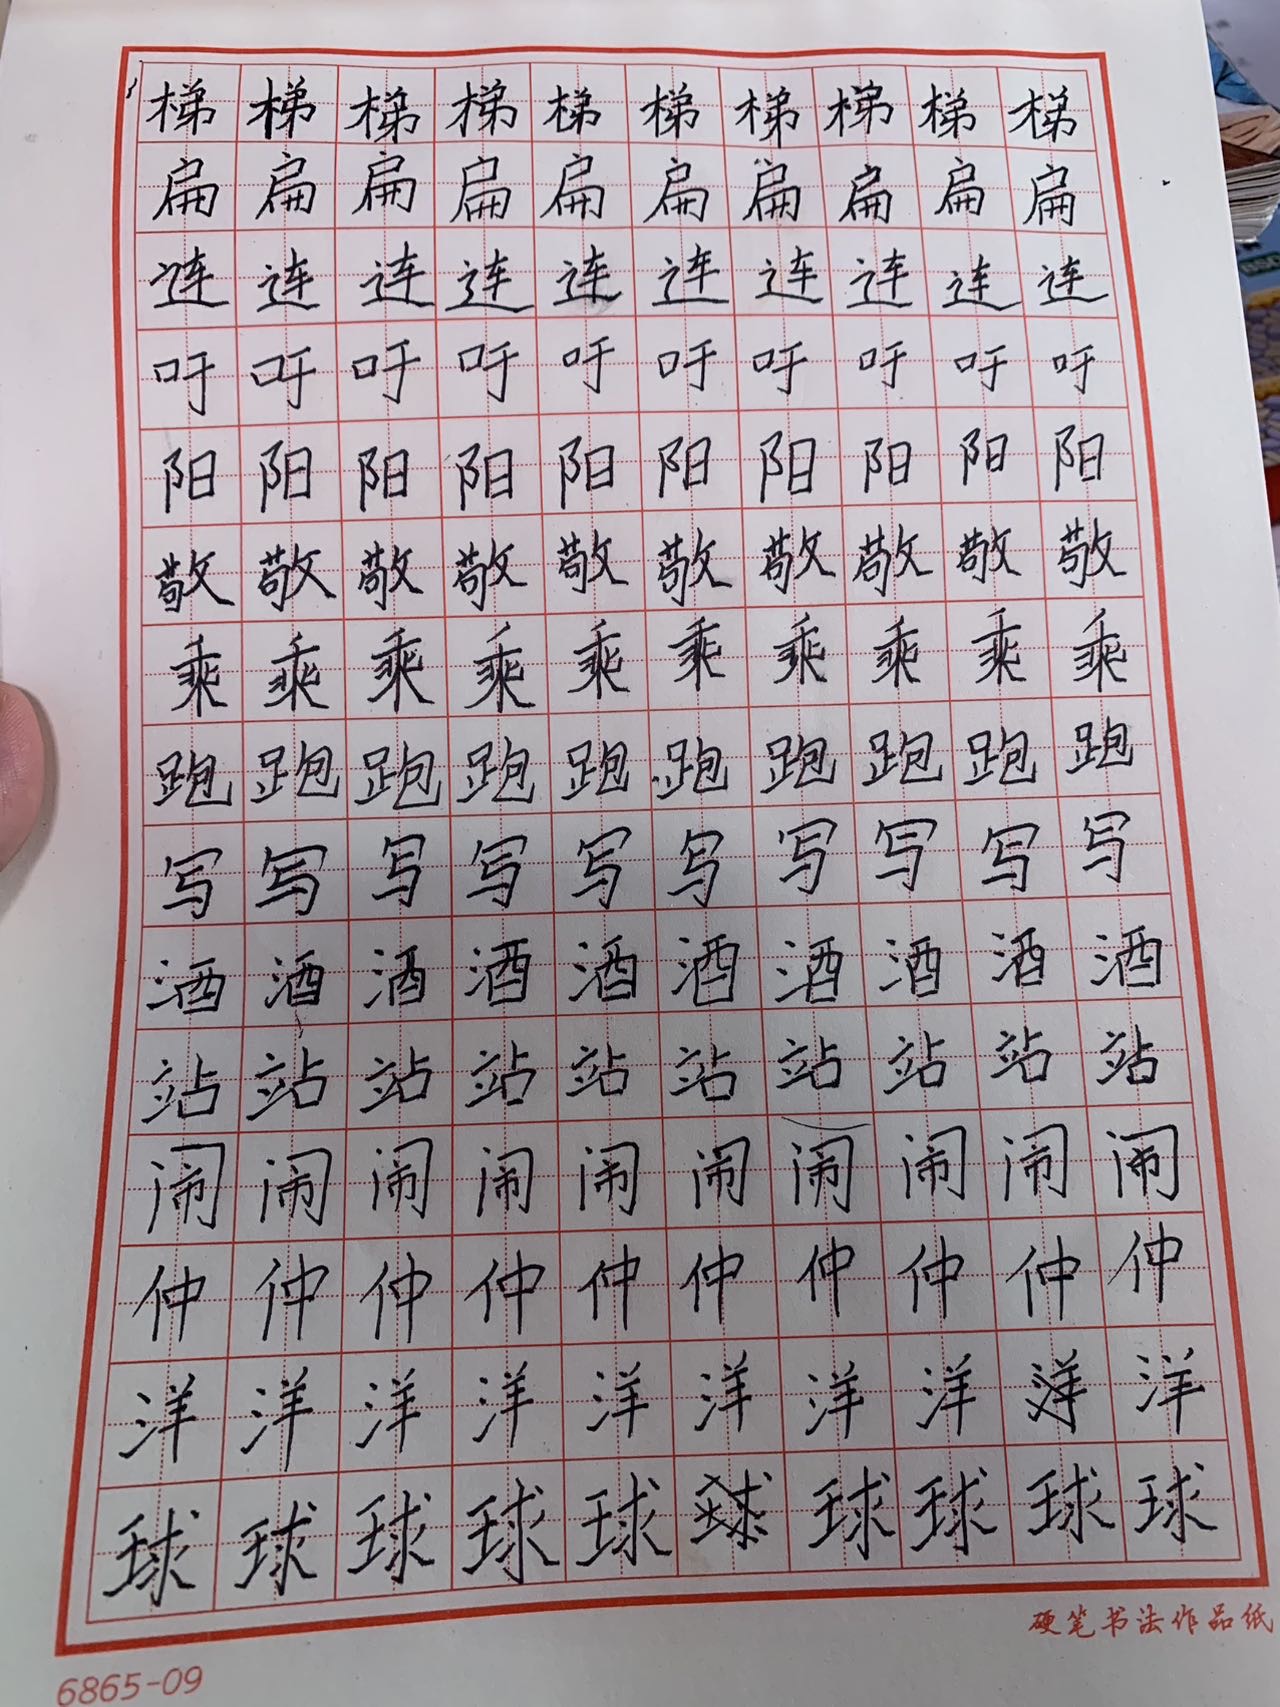 梯梯梯梯梯梯梯梯梯梯
扁扁扁扁扁扁扁扁扁扁
连连连连连连连连连连
吁吁吁吁吁吁吁吁吁吁
阳阳阳阳阳阳阳阳阳阳
敬敬敬敬敬敬敬敬敬敬
乘乘乘乘乘乘乘乘乘乘
跑跑跑跑跑跑跑跑跑跑
写写写写写写写写写写
酒酒酒酒酒酒酒酒酒酒
站站站站站站站站站站
闹闹闹闹闹闹闹闹闹闹
仲仲仲仲仲仲仲仲仲仲
洋洋洋洋洋洋洋洋洋洋
球球球球球球球球球球
硬笔书法作品纸
6865-09